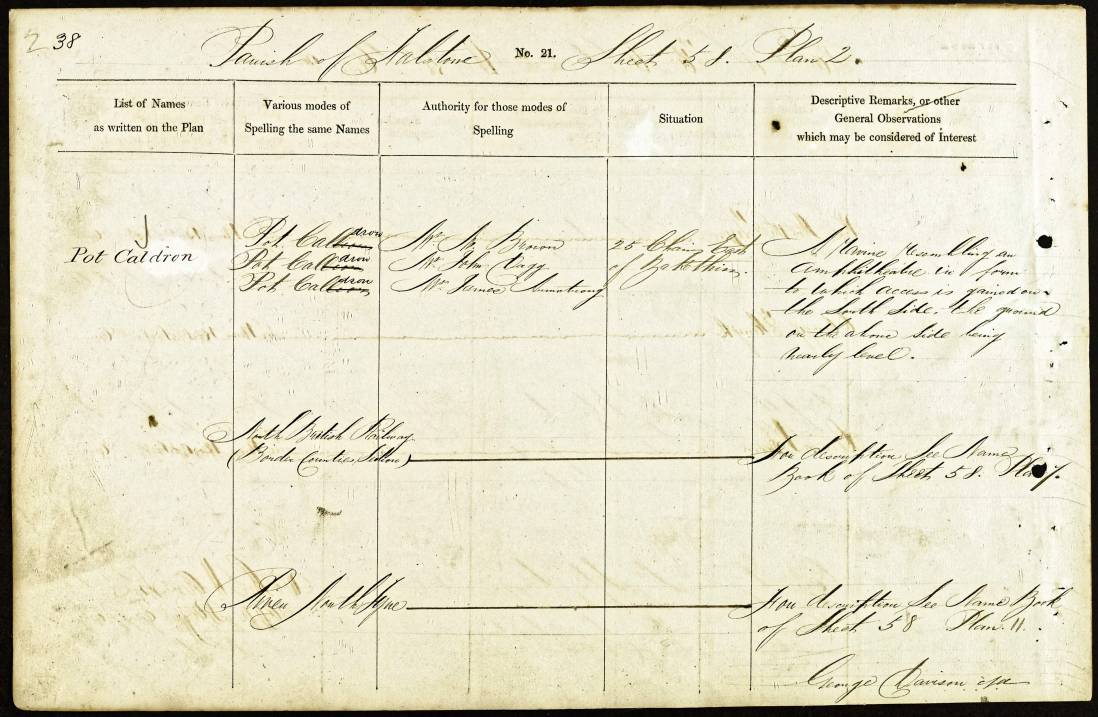 2 38
Parish of Falstone No. 21. Sheet 58. Plan 2.
List of Names
as written on the Plan
Various modes of
Spelling the same Names
Authority for those modes of
Spelling
Situation
Descriptive Remarks, or other
General Observations
which may be considered of Interest
Pot Caldron
Pot Caldron
Pot Caldron
Pot Caldron
Mr. W. Brown
Mr. John Dagg
Mr. James Armstrong
25 Chains East
of
A Ravine resembling an
amphitheatre in form
to which access is gained on
the South Side. the ground
on the above side being
nearly level.
North British Railway
(Border Counties Section)
For description See Name
Book of Sheet 58. Plan 7.
River North Tyne
For description See Name Book
of Sheet 58 Plan 11.
George Davison c/a